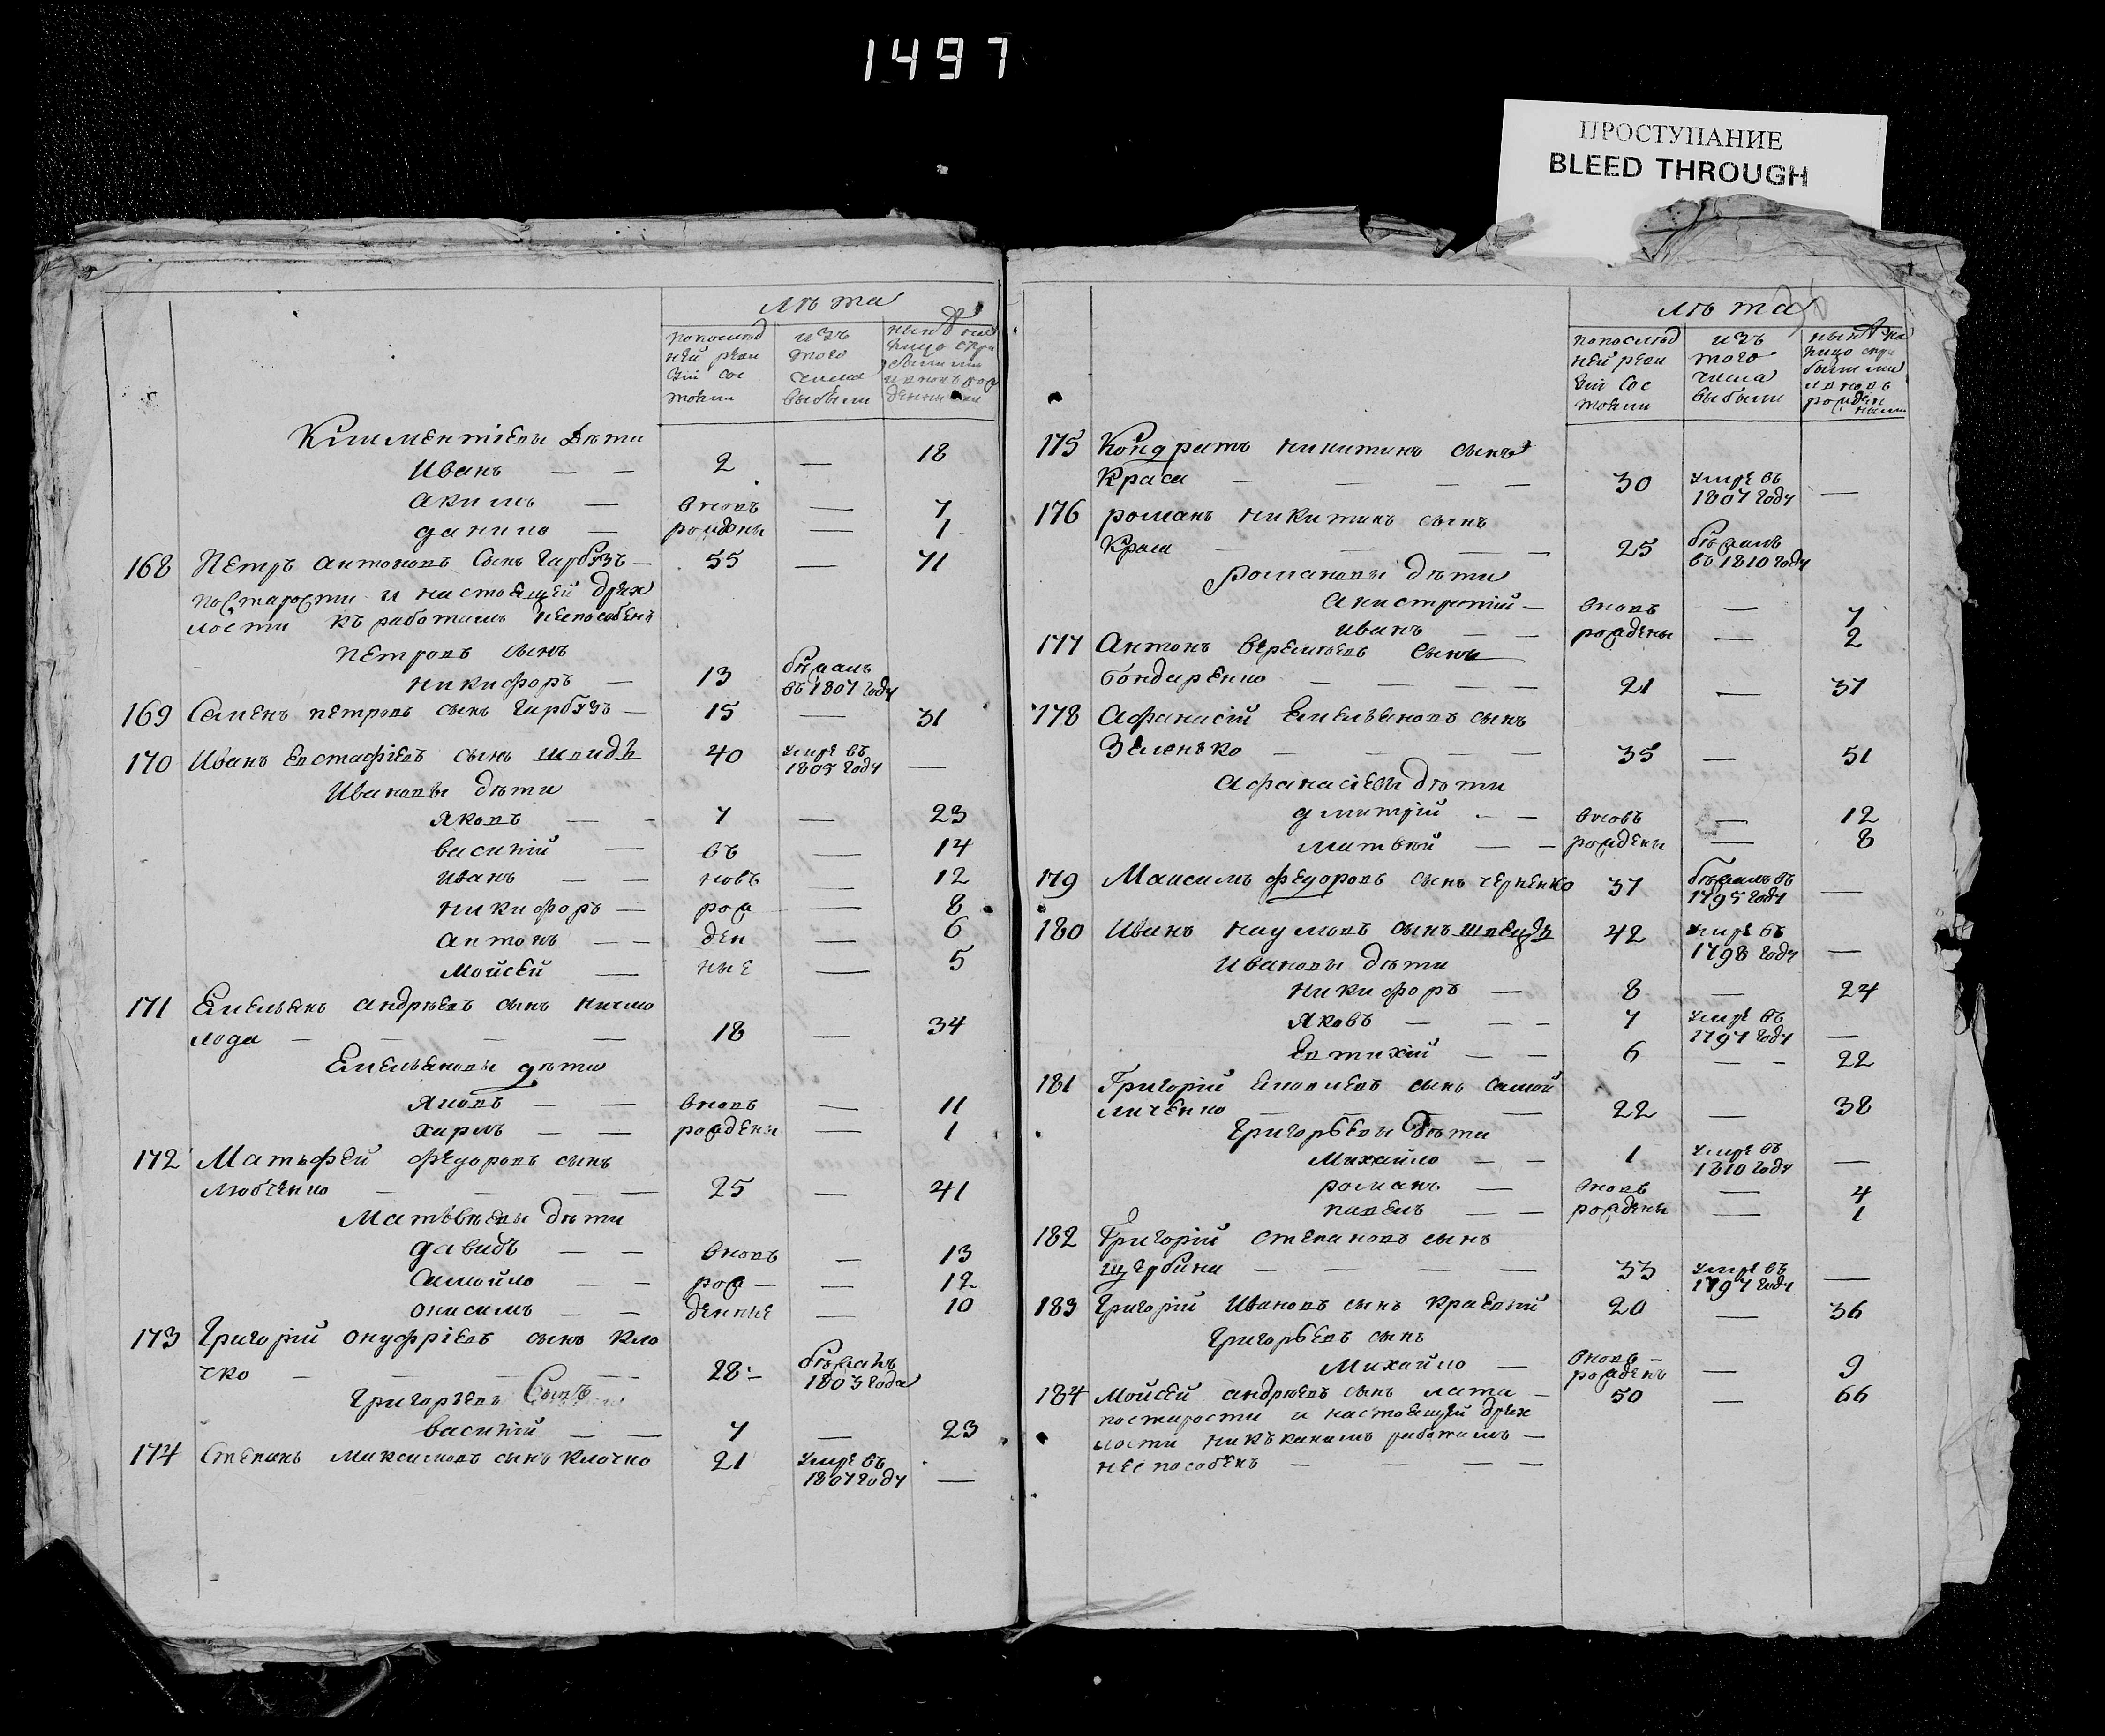 1497
ПРОСТУПАНИЕ
BLEED THROUGH
Лѣта
попослѣд ней реви зіи сос тояли
изъ того числа выбыли
Климентіевы Дѣти
Иванъ — — 2 — 18
акимъ — вновь — 7
данило — рождены — 1
168 Петръ антоновъ Сынъ Гарбузъ — 55 — 71
постарости и настоящей дрях
лости къ работамъ неспособенъ
петровъ сынъ
никифоръ — 13 бѣжалъ въ 1807 году
169 Семенъ петровъ сынъ Гарбузъ — 15 — 31
170 Иванъ Евстафіевъ сынъ 40 умре въ 1805 году —
Ивановы дѣти
Яковъ — — 7 — 23
василій — въ — 14
иванъ — — новь — 12
никифоръ — рож — 8
антонъ — — ден — 6
Мойсей — ные — 5
171 Емельянъ андрѣевъ сынъ
лода — — — — 18 — 34
Емельяновы дѣти
Яковъ — — вновь — 11
— — рождены — 1
172 Матьфей федоровъ сынъ
— — — 25 — 41
Матьвѣевы дѣти
давидъ — — вновь — 13
Самойло — — рож — — 12
онисимъ — — денные — 10
173 Григорій онуфріевъ сынъ кло
чко — — — — — 28 — бѣжалъ 1803 года
Григорьевъ Сынъ
василій — — 7 — 23
174 Степанъ максимовъ сынъ клочко 21 умре въ 1807 году —
лѣта
попослѣд ней реви зіи сос тояли
изъ того числа выбыли
175 Кондратъ никитинъ сынъ
Краса — — — — 30 умре въ 1807 году —
176 романъ никитинъ сынъ
Краса — — — — 25 бѣжалъ въ 1810 году
романовы дѣти
— вновь — 7
иванъ — — рождены — 2
177 Антонъ веремѣевъ сынъ
бондаренко — — — — 21 — 37
178 Афанасій Емельяновъ сынъ
Зеленько — — — — 35 — 51
афанасіевы дѣти
дмитрій — — вновь — 12
матвѣй — — рождены — 8
179 Максимъ федоровъ сынъ черненко 37 бѣжалъ въ 1795 году —
180 Иванъ наумовъ сынъ швецъ 42 умре въ 1798 году —
Ивановы дѣти
никифоръ — 8 — 24
Яковъ — — — 7 умре въ 1797 году —
Евтихій — — 6 — — 22
181 Григорій сынъ самой
личенко — — — 22 — 38
Григорьевы дѣти
Михайло — — 1 умре въ 1810 году —
романъ — вновь — 4
павелъ — — рождены — 1
182 Григорій степановъ сынъ
щербина — — — — 33 умре въ 1797 году —
183 Григорій Ивановъ сынъ краевій 20 — 36
Григорьевъ сынъ
Михайло — вновь — рожденъ — 9
184 Мойсей андрѣевъ сынъ лата — 50 — 66
постарости и настоящей дрях
лости никъкакимъ работамъ —
неспособенъ — — — —